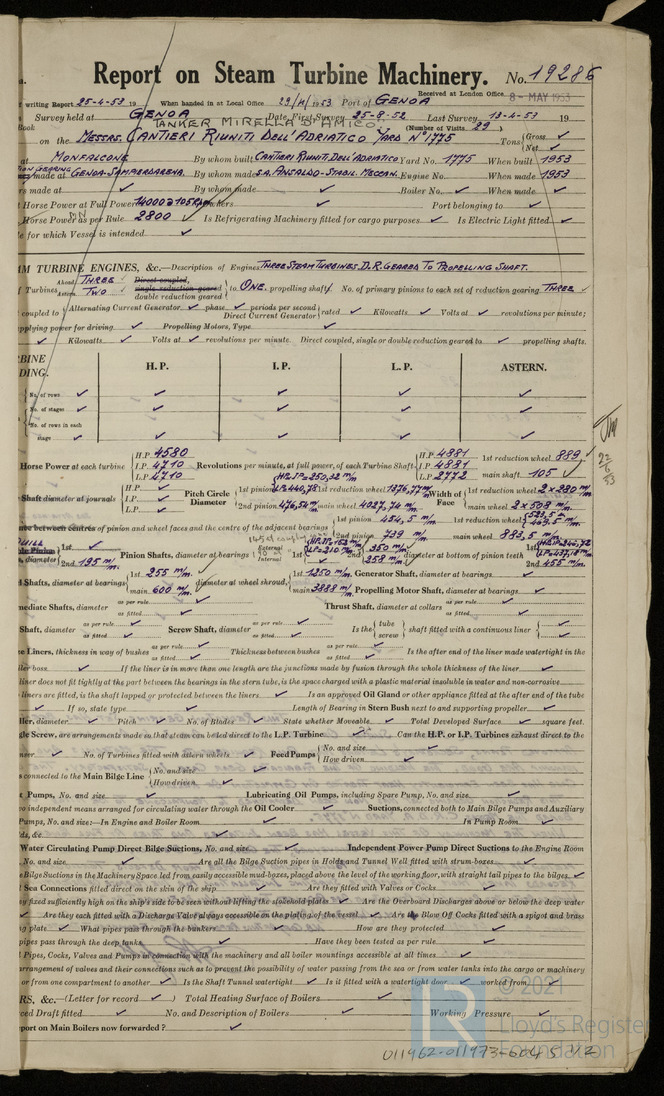 Report on Steam Turbine Machinery. No. 19286
Received at London Office 8 - MAY 1953
writing Report 25-4-53 19 When handed in at Local Office 29/4/1953 Port of GENOA
Survey held at GENOA Date, First Survey 25-8-52 Last Survey 13-4-53 19
TANKER MIRELLA D'AMICO. (Number of Visits 29)
on the MESSRS. CANTIERI RIUNITI DELL'ADRIATICO YARD No 1775 Tons { Gross Net
at MONFALCONE By whom built CANTIERI RIUNITI DELL'ADRIATICO Yard No. 1775 When built 1953
made at GENOA-SAMPIERDARENA. By whom made SA. ANSALDO-STABIL. MECCAN. Engine No. ✓ When made 1953
rs made at ✓ By whom made ✓ Boiler No. ✓ When made ✓
Horse Power at Full Power 14000 @ 105 RPM Owners Port belonging to ✓
Horse Power as per Rule 2800 ✓ Is Refrigerating Machinery fitted for cargo purposes ✓ Is Electric Light fitted ✓
e for which Vessel is intended ✓
M TURBINE ENGINES, &c.—Description of Engines THREE STEAM TURBINES D.R. GEARED TO PROPELLING SHAFT.
f Turbines Ahead THREE Astern TWO Direct coupled, single reduction geared double reduction geared } to ONE propelling shaft. No. of primary pinions to each set of reduction gearing THREE ✓
coupled to { Alternating Current Generator ✓ phase ✓ periods per second Direct Current Generator } rated ✓ Kilowatts ✓ Volts at ✓ revolutions per minute;
pplying power for driving ✓ Propelling Motors, Type ✓
✓ Kilowatts ✓ Volts at ✓ revolutions per minute. Direct coupled, single or double reduction geared to ✓ propelling shafts.
BINE DING. H. P. I. P. L. P. ASTERN.
No. of rows ✓ ✓ ✓ ✓
No. of stages ✓ ✓ ✓ ✓
No. of rows in each stage ✓ ✓ ✓ ✓
Horse Power at each turbine { H.P. 4580 I.P. 4710 L.P. 4710 Revolutions per minute, at full power, of each Turbine Shaft { H.P. 4881 I.P. 4881 L.P. 2772 1st reduction wheel 889 main shaft 105 ✓
Shaft diameter at journals { H.P. ✓ I.P. ✓ L.P. ✓ Pitch Circle Diameter { 1st pinion HP=IP=250,32 m/m LP=440,78 1st reduction wheel 1376,77 m/m 2nd pinion 476,54 m/m main wheel 4027,74 m/m Width of Face { 1st reduction wheel 2 x 230 m/m main wheel 2 x 508 m/m
between centres of pinion and wheel faces and the centre of the adjacent bearings { 1st pinion 454,5 m/m 2nd pinion 739 m/m 1st reduction wheel main wheel 883,5 m/m
1st ✓ 2nd 195 m/m Pinion Shafts, diameter at bearings External Internal 1st 2nd 350 m/m 358 m/m diameter at bottom of pinion teeth 1st 2nd 455 m/m
l Shafts, diameter at bearings { 1st 255 m/m main 600 m/m diameter at wheel shroud, { 1st 1250 m/m main 3888 m/m Generator Shaft, diameter at bearings ✓ Propelling Motor Shaft, diameter at bearings ✓
mediate Shafts, diameter as per rule ✓ as fitted ✓ Thrust Shaft, diameter at collars as per rule ✓ as fitted ✓
Shaft, diameter as per rule ✓ as fitted ✓ Screw Shaft, diameter as per rule ✓ as fitted ✓ Is the { tube screw } shaft fitted with a continuous liner { ✓ ✓
e Liners, thickness in way of bushes as per rule ✓ as fitted ✓ Thickness between bushes as per rule ✓ as fitted ✓ Is the after end of the liner made watertight in the
ler boss ✓ If the liner is in more than one length are the junctions made by fusion through the whole thickness of the liner ✓
liner does not fit tightly at the part between the bearings in the stern tube, is the space charged with a plastic material insoluble in water and non-corrosive
liners are fitted, is the shaft lapped or protected between the liners ✓ Is an approved Oil Gland or other appliance fitted at the after end of the tube
✓ If so, state type ✓ Length of Bearing in Stern Bush next to and supporting propeller ✓
ler, diameter ✓ Pitch ✓ No. of Blades ✓ State whether Moveable ✓ Total Developed Surface ✓ square feet.
gle Screw, are arrangements made so that steam can be led direct to the L.P. Turbine ✓ Can the H.P. or I.P. Turbines exhaust direct to the
nser ✓ No. of Turbines fitted with astern wheels ✓ Feed Pumps { No. and size ✓ How driven ✓
connected to the Main Bilge Line { No. and size ✓ How driven ✓
e Pumps, No. and size ✓ Lubricating Oil Pumps, including Spare Pump, No. and size ✓
o independent means arranged for circulating water through the Oil Cooler ✓ Suctions, connected both to Main Bilge Pumps and Auxiliary
Pumps, No. and size:—In Engine and Boiler Room ✓ In Pump Room ✓
ds, &c ✓
Water Circulating Pump Direct Bilge Suctions, No. and size ✓ Independent Power Pump Direct Suctions to the Engine Room
, No. and size ✓ Are all the Bilge Suction pipes in Holds and Tunnel Well fitted with strum-boxes ✓
e Bilge Suctions in the Machinery Space led from easily accessible mud-boxes, placed above the level of the working floor, with straight tail pipes to the bilges ✓
l Sea Connections fitted direct on the skin of the ship ✓ Are they fitted with Valves or Cocks ✓
y fixed sufficiently high on the ship's side to be seen without lifting the stokehold plates ✓ Are the Overboard Discharges above or below the deep water
✓ Are they each fitted with a Discharge Valve always accessible on the plating of the vessel ✓ Are the Blow Off Cocks fitted with a spigot and brass
ng plate ✓ What pipes pass through the bunkers ✓ How are they protected ✓
pipes pass through the deep tanks ✓ Have they been tested as per rule ✓
l Pipes, Cocks, Valves and Pumps in connection with the machinery and all boiler mountings accessible at all times ✓
arrangement of valves and their connections such as to prevent the possibility of water passing from the sea or from water tanks into the cargo or machinery
or from one compartment to another ✓ Is the Shaft Tunnel watertight ✓ Is it fitted with a watertight door ✓ worked from ✓
RS, &c.—(Letter for record ✓ ) Total Heating Surface of Boilers ✓
ced Draft fitted ✓ No. and Description of Boilers ✓ Working Pressure ✓
port on Main Boilers now forwarded? ✓
© 2021
LR
Lloyd's Register
Foundation
011962-011973-6045 1/2